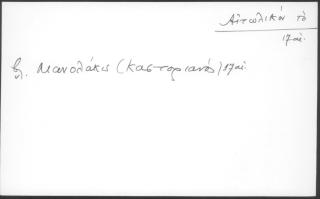 Αἰτωλικόν τό
17 αἰ.
βλ. Μανολάκις (Καστοριανός) 17 αἰ.